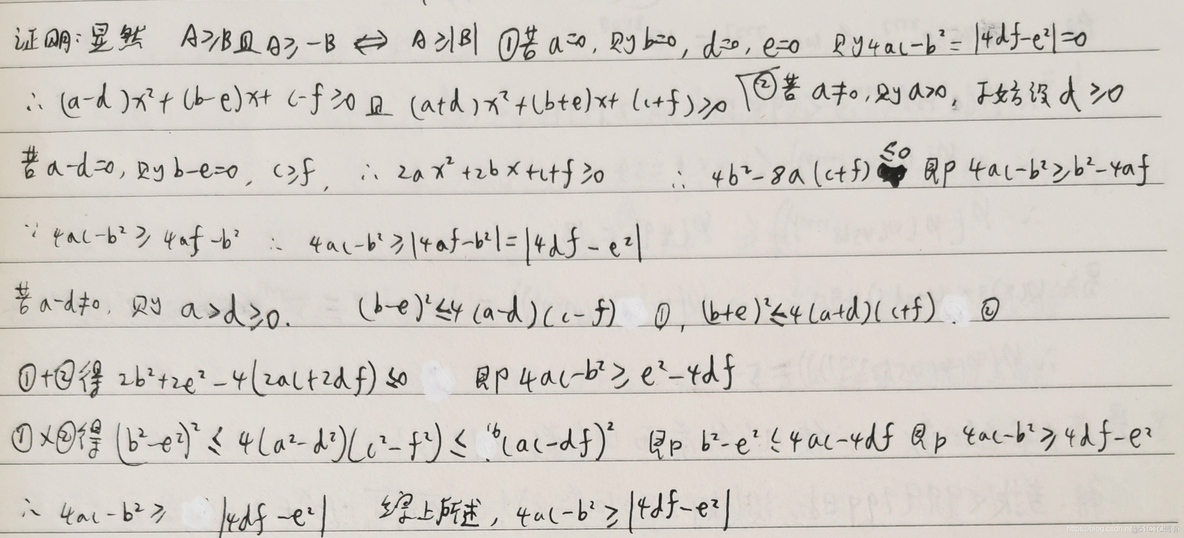 证明:显然 A≥B且A≥-B ⇔ A≥|B| ①若a=0,则b=0,d=0,e=0 则4ac-b²=|4df-e²|=0
∴(a-d)x²+(b-e)x+c-f≥0 且 (a+d)x²+(b+e)x+(c+f)≥0 ②若a≠0,则a>0,不妨设d≥0
若a-d=0,则b-e=0,c≥f,∴2ax²+2bx+c+f≥0 ∴4b²-8a(c+f)≤0 即4ac-b²≥b²-4af
∵4ac-b²≥4af-b² ∴4ac-b²≥|4af-b²|=|4df-e²|
若a-d≠0,则a>d≥0. (b-e)²≤4(a-d)(c-f) ①,(b+e)²≤4(a+d)(c+f). ②
①+②得 2b²+2e²-4(2ac+2df)≤0 即4ac-b²≥e²-4df
①×②得(b²-e²)²≤4(a²-d²)(c²-f²)≤16(ac-df)² 即b²-e²≤4ac-4df 即4ac-b²≥4df-e²
∴4ac-b²≥|4df-e²| 综上所述,4ac-b²≥|4df-e²|